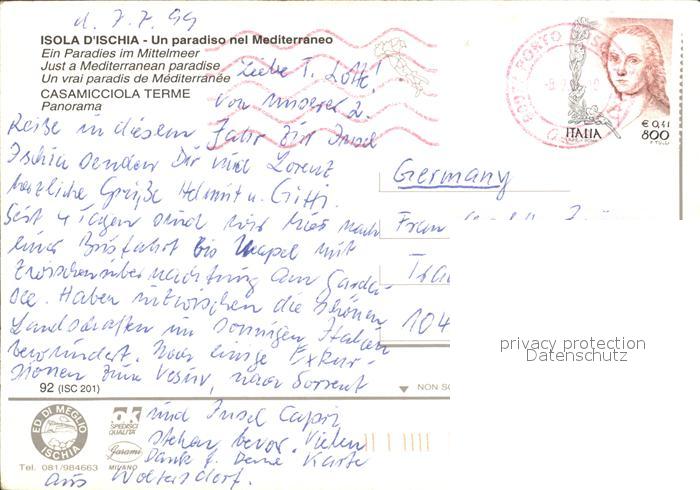 d. 7.7.99
ISOLA D'ISCHIA - Un paradiso nel Mediterraneo
Ein Paradies im Mittelmeer
Just a Mediterranean paradise
Un vrai paradis de Méditerranée
CASAMICCIOLA TERME
Panorama
Liebe T. Lotte!
von unserer 2.
Reise in diesem Jahr zur Insel
Ischia senden Dir und Lorenz
herzliche Grüße Helmut u. Gitti.
Seit 4 Tagen sind wir hier nach
einer Busfahrt bis Neapel mit
Zwischenübernachtung am Garda-
see. Haben inzwischen die schönen
Landschaften im sonnigen Italien
bewundert. Noch einige Exkur-
sionen zum Vesuv, nach Sorrent
und Insel Capri
stehen bevor. Vielen
Dank f. Deine Karte
aus Woltersdorf.
ITALIA
€ 0,41
800
Germany
Frau
104
privacy protection
Datenschutz
92 (ISC 201)
NON
ED DI MEGLIO
ISCHIA
Tel. 081/984663
ok
SPEDISCI
QUALITA'
Garami
MILANO